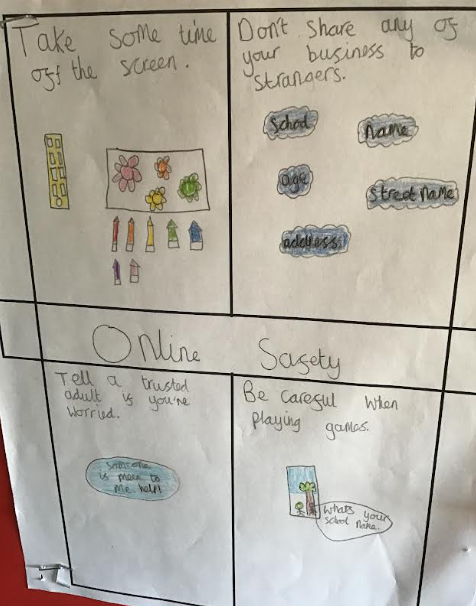 Take some time
off the screen.
Don't share any of
your business to
strangers.
School
Name
age
Street Name
address
Online Safety
Tell a trusted
adult if you're
worried.
Someone
is mean to
me help!
Be careful when
playing games.
Whats your
school name.